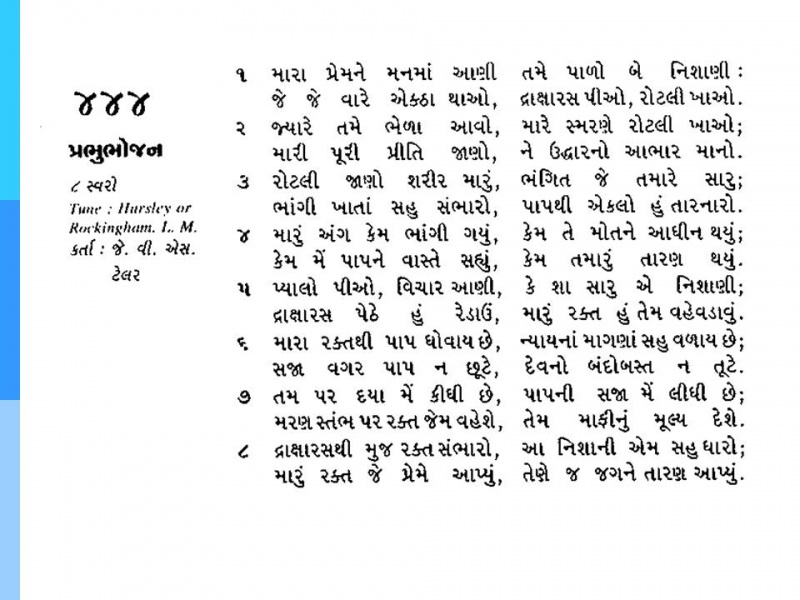 ૪૪૪
પ્રભુભોજન
૮ સ્વરો
Tune : Hursley or
Rockingham. L. M.
કર્તા : જે. વી. એસ.
ટેલર
૧ મારા પ્રેમને મનમાં આણી તમે પાળો બે નિશાણી :
જે જે વારે એકઠા થાઓ, દ્રાક્ષારસ પીઓ, રોટલી ખાઓ.
૨ જ્યારે તમે ભેળા આવો, મારે સ્મરણે રોટલી ખાઓ;
મારી પૂરી પ્રીતિ જાણો, ને ઉદ્ધારનો આભાર માનો.
૩ રોટલી જાણો શરીર મારું, ભંગિત જે તમારે સારુ;
ભાંગી ખાતાં સહુ સંભારો, પાપથી એકલો હું તારનારો.
૪ મારું અંગ કેમ ભાંગી ગયું, કેમ તે મોતને આધીન થયું;
કેમ મેં પાપને વાસ્તે સહ્યું, કેમ તમારું તારણ થયું.
૫ પ્યાલો પીઓ, વિચાર આણી, કે શા સારુ એ નિશાણી;
દ્રાક્ષારસ પેઠે હું રેડાઉં, મારું રક્ત હું તેમ વહેવડાવું.
૬ મારા રક્તથી પાપ ધોવાય છે, ન્યાયનાં માગણાં સહુ વળાય છે;
સજા વગર પાપ ન છૂટે, દેવનો બંદોબસ્ત ન તૂટે.
૭ તમ પર દયા મેં કીધી છે, પાપની સજા મેં લીધી છે;
મરણ સ્તંભ પર રક્ત જેમ વહેશે, તેમ માફીનું મૂલ્ય દેશે.
૮ દ્રાક્ષારસથી મુજ રક્ત સંભારો, આ નિશાની એમ સહુ ધારો;
મારું રક્ત જે પ્રેમે આપ્યું, તેણે જ જગને તારણ આપ્યું.